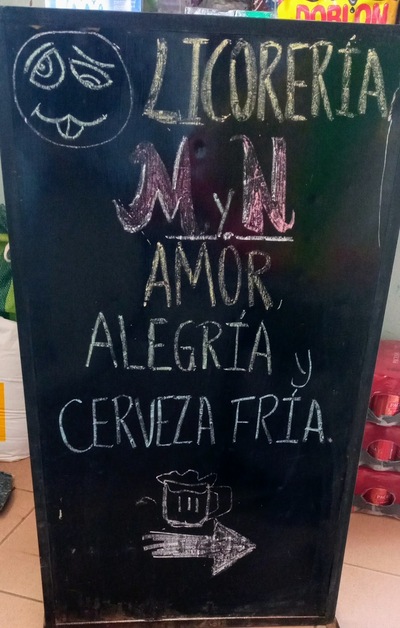 DOBLON
LICORERÍA
M y N
AMOR,
ALEGRÍA y
CERVEZA FRÍA.